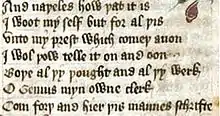 And nayeles how yat it is
I woot my self but for al yis
Vnto my prest which comey anon
I wol yow telle it on and oon
Boye al yy yought and al yy werk
O Genius myn owne clerk
Com fory and hier yis mannes schrifte